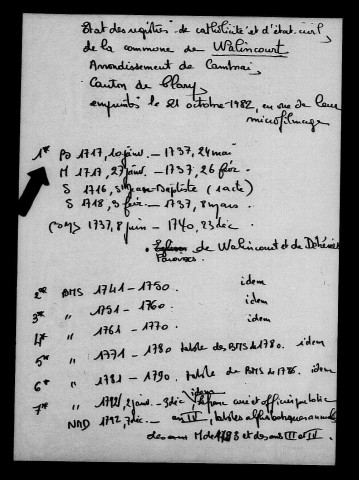 Etat des registres de catholicité et d'état civil
de la commune de Walincourt
Arrondissement de Cambrai
Canton de Clary
empruntés le 21 octobre 1982, en vue de leur
microfilmage
1* B 1717, 10 janv. — 1737, 24 mai
M 1717, 27 janv. — 1737, 26 fév.
S 1716, St Jean-Baptiste (1 acte)
S 1718, 3 fév. — 1737, 8 mars.
BMS 1737, 8 juin — 1740, 23 déc.
Eglises de Walincourt et de
Paroisses
2* BMS 1741 — 1750. idem
3* " 1751 — 1760. idem
4* " 1761 — 1770. idem
5* " 1771 — 1780 table des BMS de 1780. idem
6* " 1781 — 1790. table de BMS de 1786. idem
7* " 1792, 2 janv. — 3 déc idem curé et officier public
NMD 1792, 7 déc. — an IV, tables alphabétiques annuelles
des ans M de 1793 et des ans III et IV.